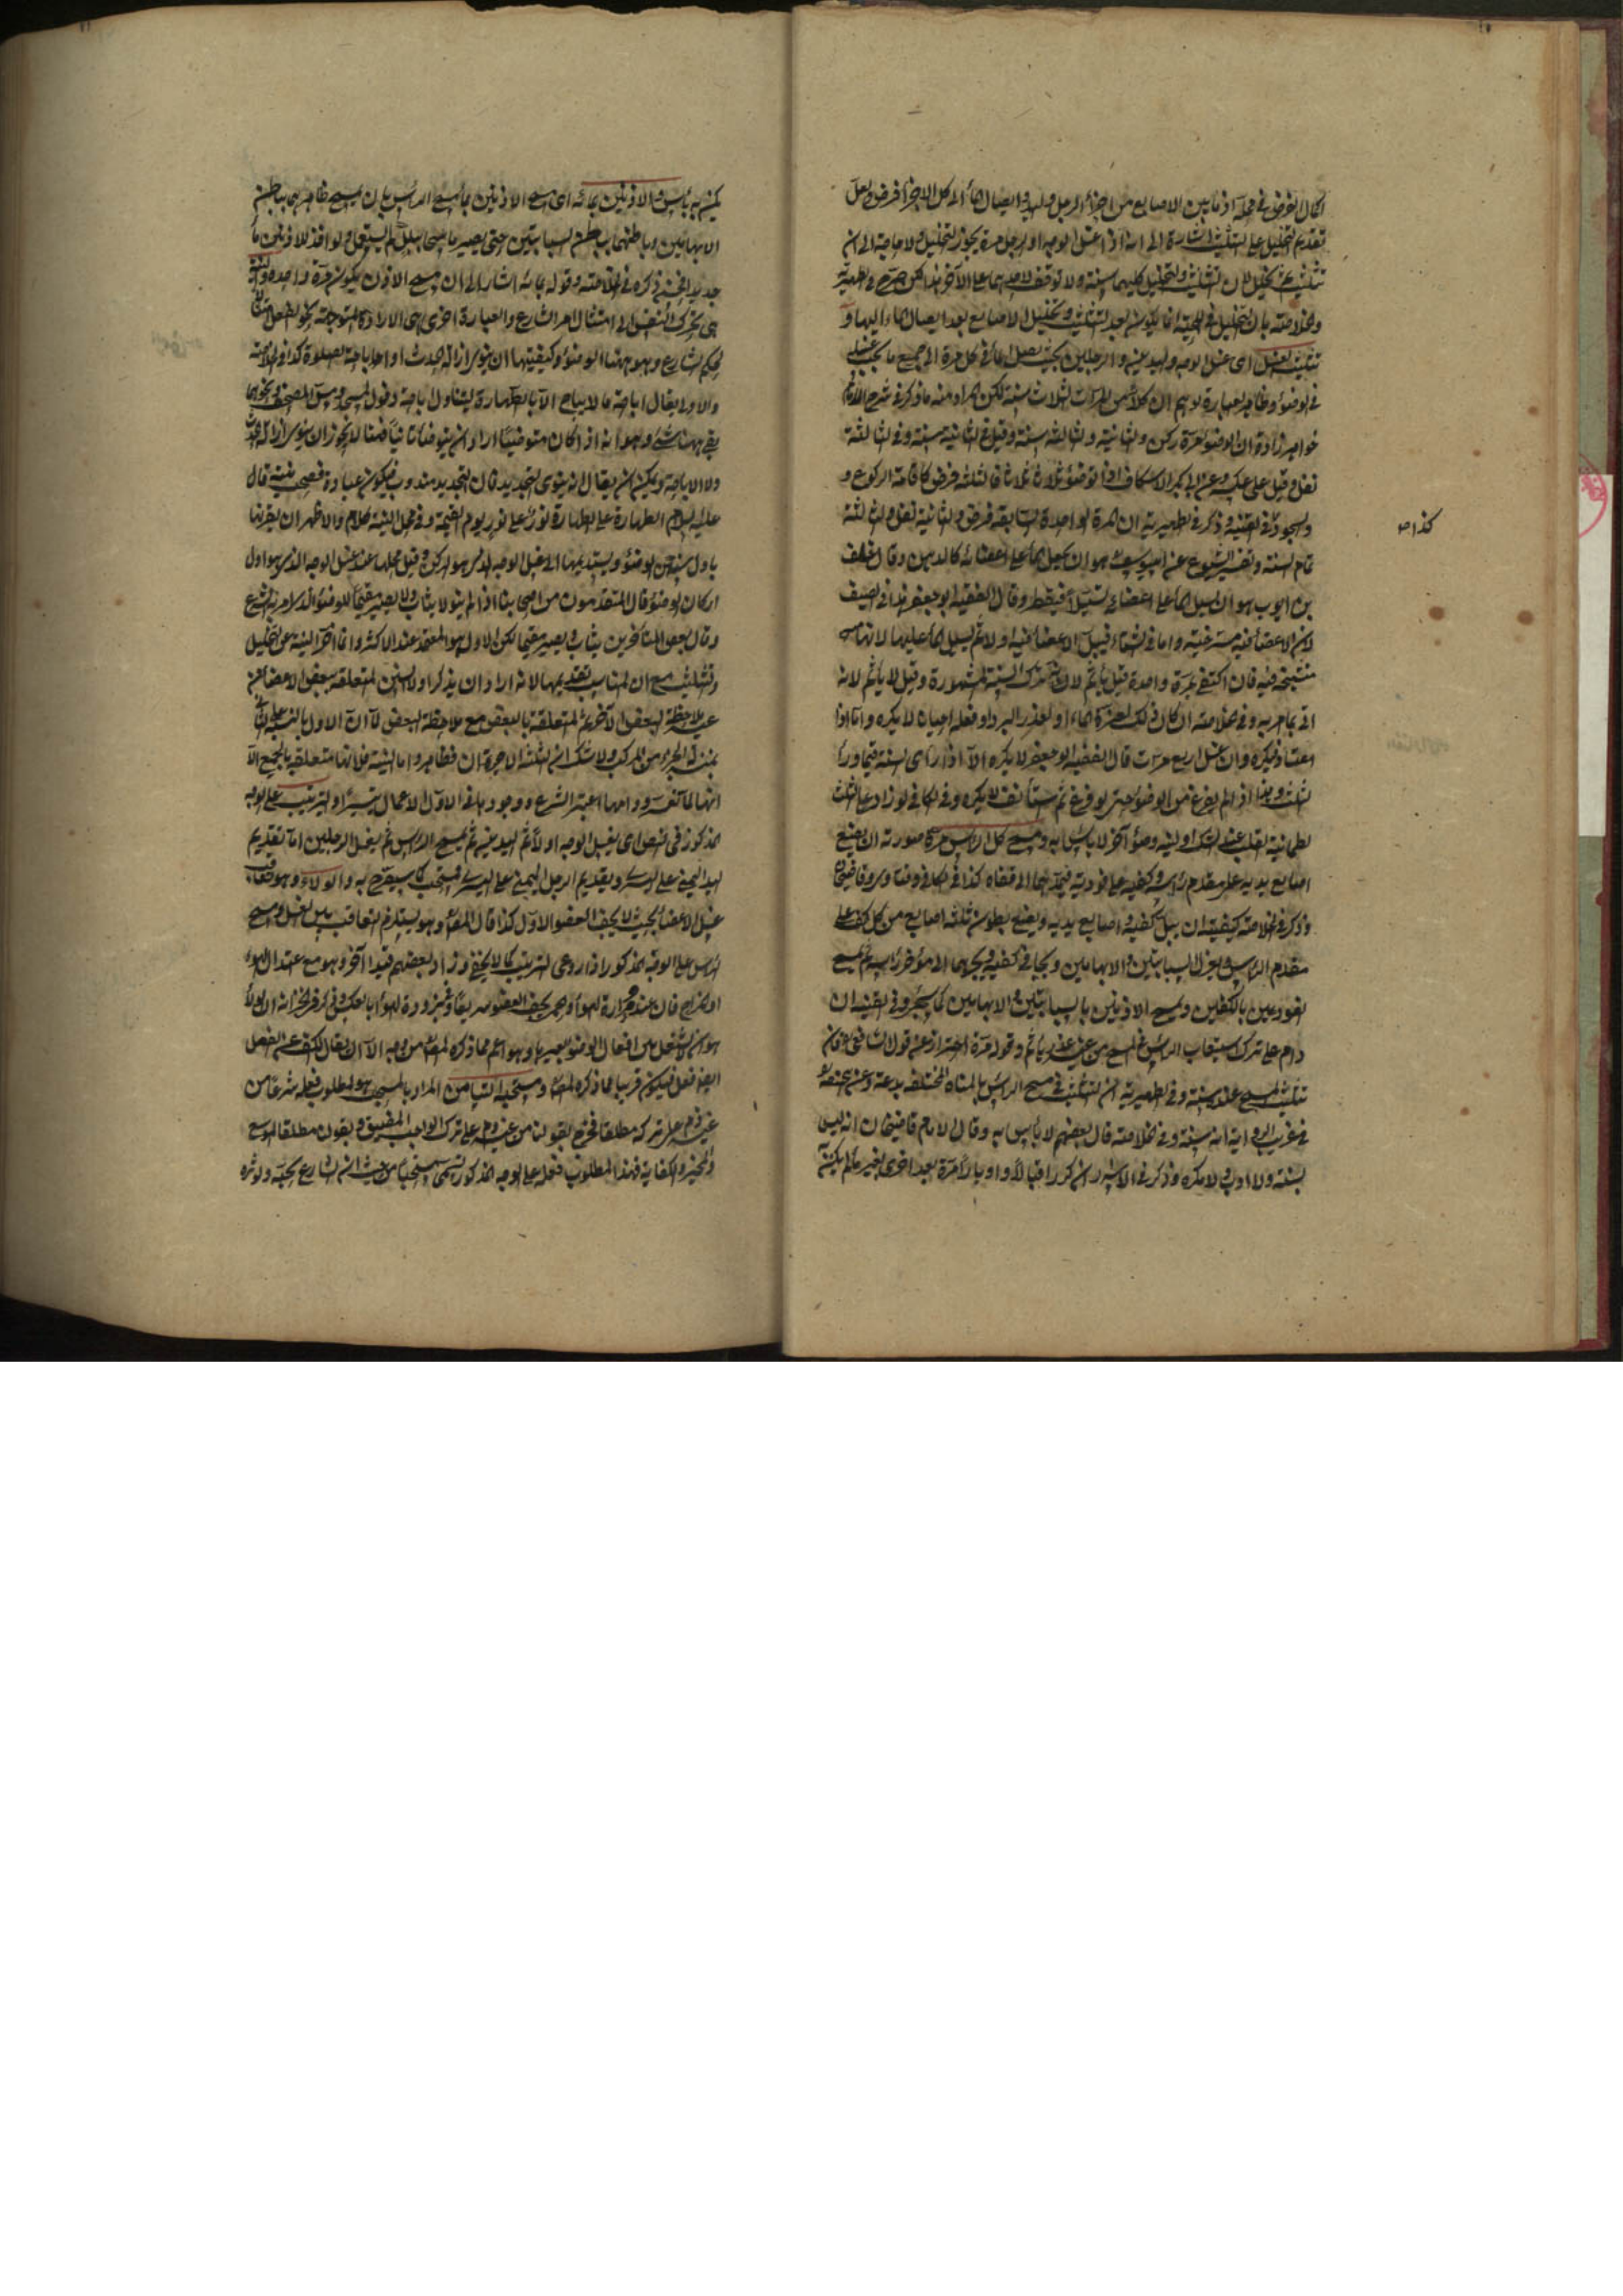 اكمال الفرض في محله اذ ما بين الاصابع من اجزاء الرجل واليد وايصال الماء الى كل الاجزاء فرض ولعل
تقديم التخليل على التثليث اشارة الى انه اذا غسل الوجه او الرجل مرة يجوز التخليل ولا حاجة الى ان
تثليث ثم تخليل لان التثليث والتخليل كليهما سنة ولا توقف لاحدهما على الآخر هذا لكن صرح في الظهيرية
والخلاصة بان تخليل اللحية انما يكون بعد التثليث وتخليل الاصابع بعد ايصال الماء اليها و
تثليث الغسل اى غسل الوجه واليدين والرجلين بحيث يصل الماء في كل مرة الى جميع ما يجب غسله
في الوضوء وظاهر العبارة يوهم ان كلا من المرات الثلاث سنة لكن المراد منه ما ذكر في شرح الامام
خواهر زادة ان الوضوء مرة ركن والثانية والثالثة سنة وقيل الثانية سنة وفي الثالثة
نفل وقيل على عكسه وعن ابى بكر الاسكاف اذا توضؤ ثلاثا ثلاثا فالثلثة فرض كاقامة الركوع و
السجود في القنية وذكر في الظهيرية ان المرة الواحدة السابغة فرض والثانية نفل والثالثة
تمام السنة وتفسير السبوغ عند ابى يوسف هو ان يجعل الماء على اعضائه كالدهن وقال خلف
بن ايوب هو ان يسيل الماء على اعضائه تسييلا فيقطر وقال الفقيه ابو جعفر هذا في الصيف
لان الاعضاء فيه مسترخية واما في الشتاء فيبل الاعضاء فيه اولا ثم يسيل الماء عليها لانها
متشنجة فيه فان اكتفى بمرة واحدة قيل يأثم لانه ترك السنة المشهورة وقيل لا يأثم لانه
اتى بما امر به وفي الخلاصة ان كان ذلك لعزة الماء او لعذر البرد او فعله احيانا لا يكره واما اذا
معتاد فيكره وان غسل اربع مرات قال الفقيه ابو جعفر لا يكره الا اذا رأى السنة فيما وراء
الثلث وهذا اذا لم يفرغ من الوضوء حتى لو فرغ ثم استأنف لا يكره وفي الكافي لو زاد على الثلث
لطمانية القلب عند الشك او لنية وضوء آخر لا باس به ومسح كل الراس مرة صورته ان يضع
اصابع يديه على مقدم رأسه وكفيه على فوديه فيمدهما الى قفاه كذا في الكافي وفتاوى قاضيخان
وذكر في الخلاصة كيفيته ان يبل كفيه واصابع يديه ويضع بطون ثلثة اصابع من كل كف على
مقدم الرأس ويعزل السبابتين والابهامين ويجافي كفيه ويجرهما الى مؤخر رأسه ثم يمسح
الفودين بالكفين ويمسح الاذنين بالسبابتين والابهامين كما سيجئ وفي القنية ان
دام على ترك استيعاب الرأس في المسح من غير عذر يأثم وقوله مرة احتراز عن قول الشافعي فان
تثليث المسح عنده سنة وفي الظهيرية ان التثليث في مسح الرأس بالمياه المختلفة بدعة وعن ابى حنيفة
في غريب الرواية انه سنة وفي الخلاصة قال بعضهم لا بأس به وقال الامام قاضيخان انه ليس
بسنة ولا ادب ولا مكره وذكر في الاسرار ان كرر اقبالا وادبارا مرة بعد اخرى بغير ماء لم يكن
كذا صح
لم يكن به بأس والاذنين بمائه اى مسح الاذنين بماء مسح الرأس بان يمسح ظاهرهما بباطن
الابهامين وباطنهما بباطن السبابتين حتى يصير ماسحا ببلل لم يستعمل ولو اخذ للاذنين ماء
جديدا فحسن ذكره في الخلاصة وقوله بمائه اشار الى ان مسح الاذن يكون مرة واحدة والنية
هى تحرك النفس الى امتثال امر الشارع والعبارة اخرى هى الارادة المتوجهة نحو الفعل امتثالا
لحكم الشارع وهو ههنا الوضوء وكيفيتها ان ينوى ازالة الحدث او اباحة الصلوة كذا في الخلاصة
والاولى يقال اباحة ما لا يباح الا بالطهارة ليتناول اباحة دخول المسجد ومس المصحف ونحوهما
بقى ههنا شئ وهو انه اذا كان متوضئا اراد ان يتوضأ ثانيا فههنا لا يجوز ان ينوى ازالة الحدث
ولا الاباحة ويمكن ان يقال انه ينوى التجديد فان التجديد مندوب فيكون عبادة فصح نيته قال
عليه السلام الطهارة على الطهارة نور على نور يوم القيمة وفي محل النية كلام والاظهر ان يقرنها
باول سنة من الوضوء ويستديمها الى غسل الوجه الذى هو الركن وقيل محلها عند غسل الوجه الذى هو اول
اركان الوضوء قال المتقدمون من اصحابنا اذا لم ينو لا يثاب ولا يصير مقيما للوضوء الذى امر به الشرع
وقال بعض المتأخرين يثاب ويصير مقيما لكن الاول هو المعتمد عند الاكثر وانما اخر النية عن التخليل
والتثليث مع ان المناسب تقديمها لانه اراد ان يذكر اولا السنن المتعلقة ببعض الاعضاء من
غير ملاحظة البعض الآخر ثم المتعلقة بالبعض مع ملاحظة البعض الآخر الا ان الاول بالنسبة الى الثانى
بمنزلة الجزء من المركب ولا شك ان الثلثة الاخيرة ان فظاهر واما النية فلانها متعلقة بالجميع الا
انها لما تعسر دوامها اعتبر الشرع وجودها في الاول الاعمال تيسيرا والترتيب على الوجه
المذكور في النص اى يغسل الوجه اولا ثم اليدين ثم يمسح الرأس ثم يغسل الرجلين اما تقديم
اليد اليمنى على اليسرى وتقديم الرجل اليمنى على اليسرى فمستحب كما سيصرح به والولاء وهو تعاقب
غسل الاعضاء بحيث لا يجف العضو الاول كذا قال المص وهو يستلزم التعاقب بين الغسل ومسح
الرأس على الوجه المذكور اذا روعى الترتيب كما لا يخفى وزاد بعضهم قيدا آخر وهو مع اعتدال الهواء
او المزاج فان عند حرارة الهواء والحمى يجف العضو سريعا وعند برودة الهواء بالعكس وذكر في الخزانة ان الولاء
هو ان لا يشتغل بين افعال الوضوء بغيرها وهو اعم مما ذكره المص من وجه الا ان يقال الكف عن الفعل
ايضا فعل فيكون قريبا مما ذكره المص ومستحبه التيامن المراد بالمستحب هو المطلوب فعله شرعا من
غير ذم على تركه مطلقا فخرج بقولنا من غير ذم على تركه الواجب المضيق وبقولنا مطلقا الموسع
والمخير والكفاية فهذا المطلوب فعله على الوجه المذكور يسمى مستحبا من حيث ان الشارع يحبه ويؤثره